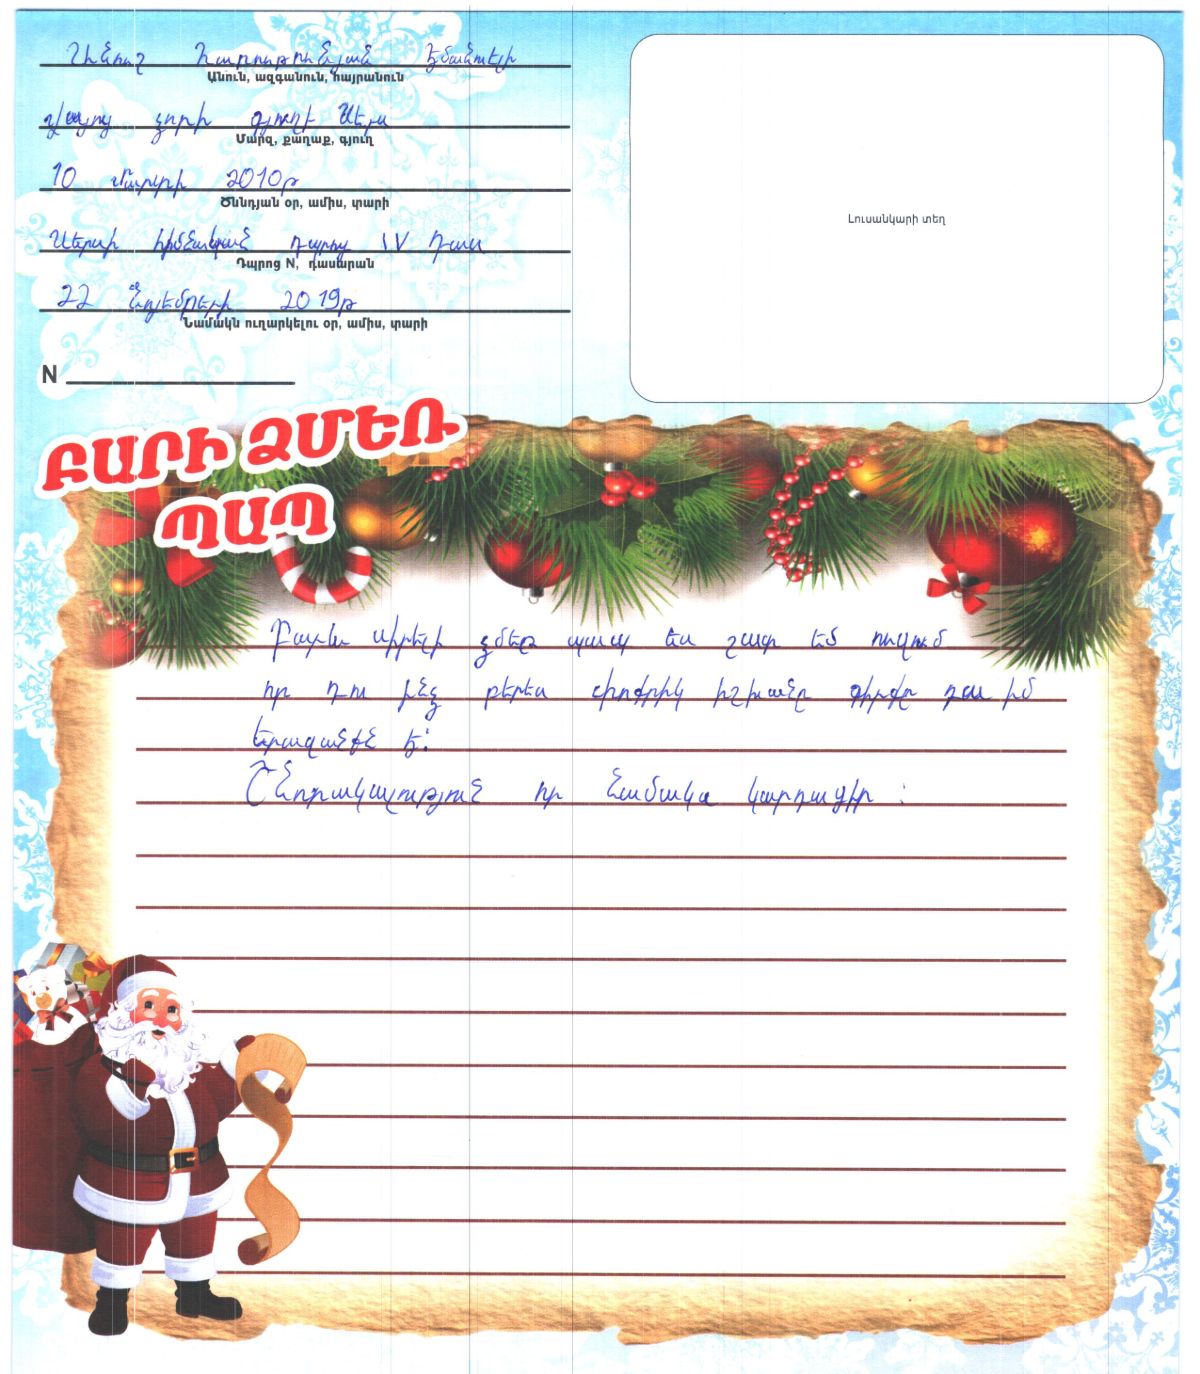 Հարությունյան Էմանուելի
Անուն, ազգանուն, հայրանուն
Վայոց ձորի գյուղ
Մարզ, քաղաք, գյուղ
10 մարտի 2010թ
Ծննդյան օր, ամիս, տարի
հիմնական դպրոց IV դաս
Դպրոց N, դասարան
22 նոյեմբերի 2019թ
Նամակն ուղարկելու օր, ամիս, տարի
N
Լուսանկարի տեղ
ԲԱՐԻ ՁՄԵՌ
ՊԱՊ
Բարև սիրելի ձմեռ պապ ես շատ եմ ուզում
որ դու ինձ բերես փոքրիկ իշխանը գիրքը դա իմ
երազանքն է:
Շնորակալություն որ նամակս կարդացիր :